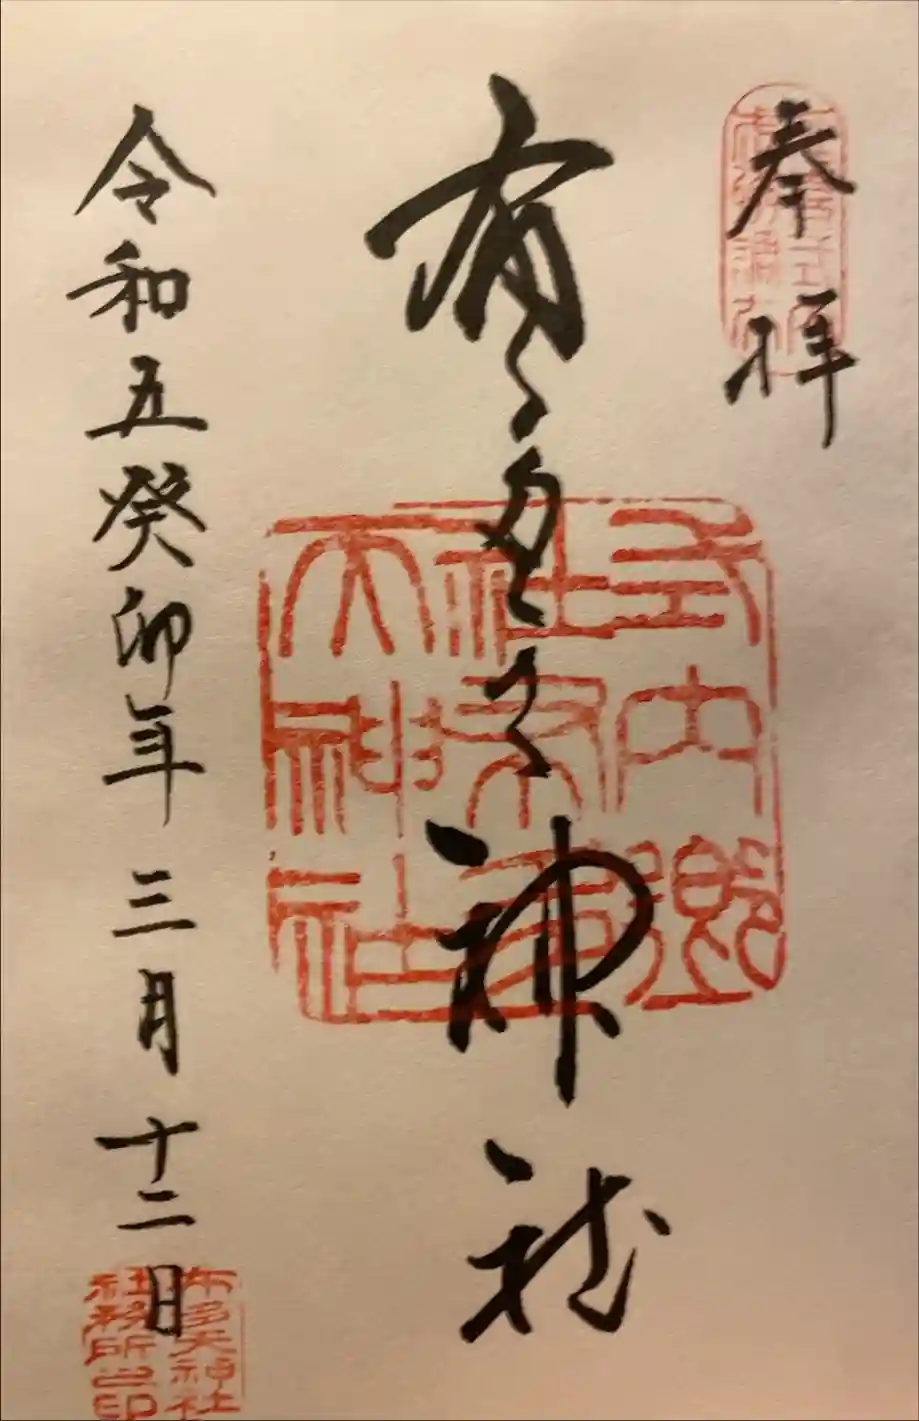 奉拝
布多天神社
式内郷
社布多
天神社
令和五癸卯年三月十二日
布多天神社
社務所之印